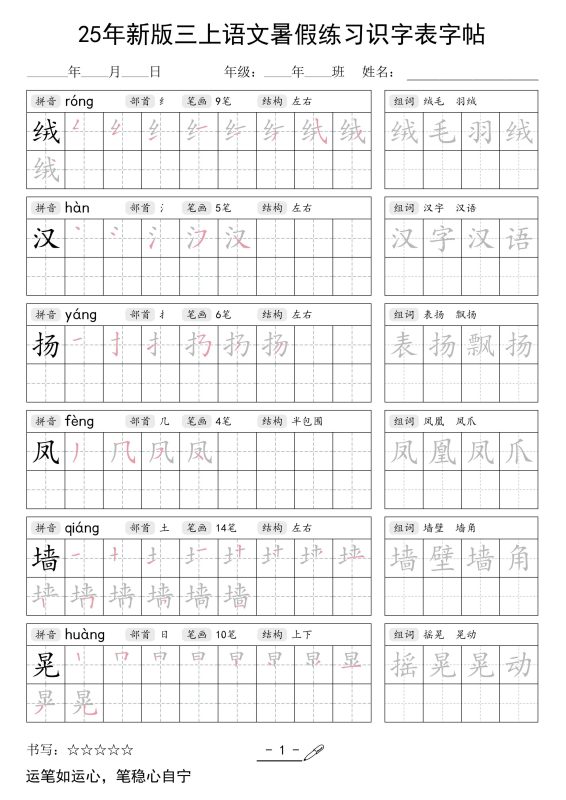 25年新版三上语文暑假练习识字表字帖
______年____月____日 年级：____年____班 姓名：____________________
拼音 róng 部首 纟 笔画 9笔 结构 左右 组词 绒毛 羽绒
绒 绒 毛 羽 绒
绒
拼音 hàn 部首 氵 笔画 5笔 结构 左右 组词 汉字 汉语
汉 汉 汉 字 汉 语
拼音 yáng 部首 扌 笔画 6笔 结构 左右 组词 表扬 飘扬
扬 扬 表 扬 飘 扬
拼音 fèng 部首 几 笔画 4笔 结构 半包围 组词 凤凰 凤爪
凤 凤 凤 凰 凤 爪
拼音 qiáng 部首 土 笔画 14笔 结构 左右 组词 墙壁 墙角
墙 墙 壁 墙 角
墙
拼音 huàng 部首 日 笔画 10笔 结构 上下 组词 摇晃 晃动
晃 摇 晃 晃 动
晃
书写：☆☆☆☆☆ - 1 -
运笔如运心，笔稳心自宁